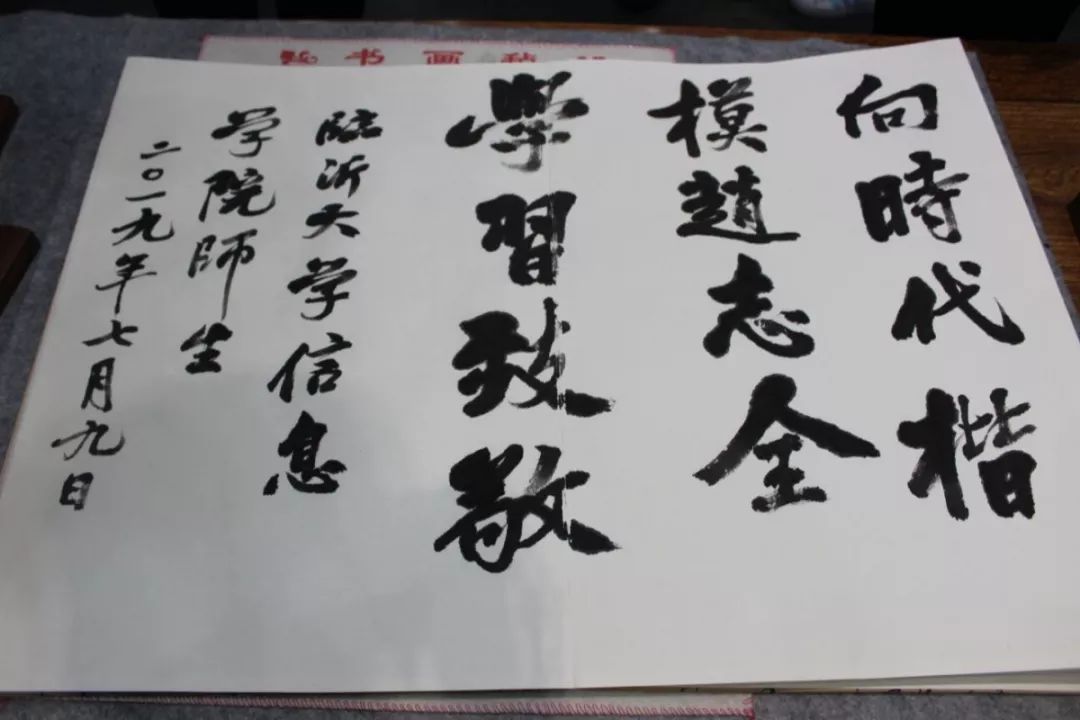 向時代楷
模趙志全
學習致敬
臨沂大学信息
学院師生
二〇一九年七月九日
书画